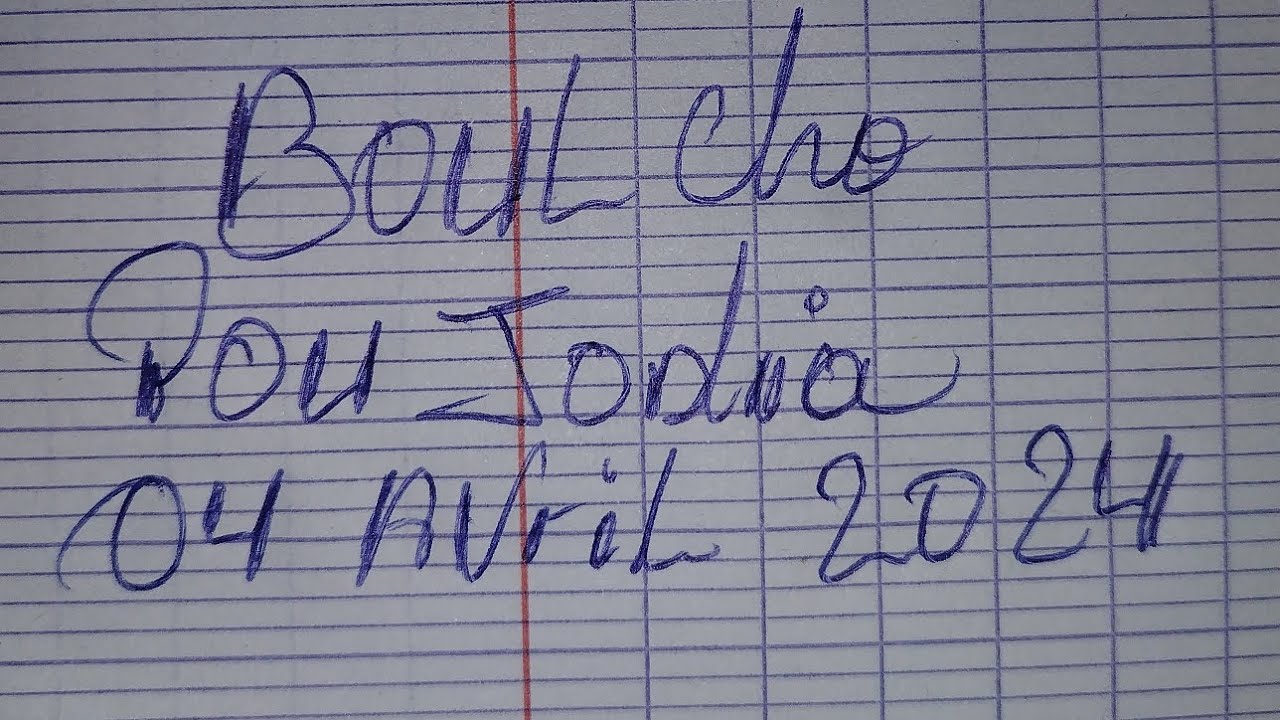 Boul cho
Pou Jodia
04 Avril 2024